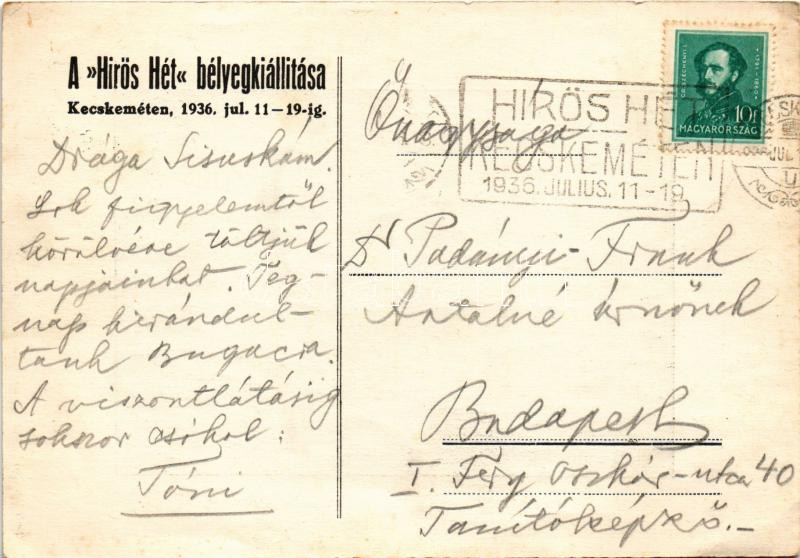 A »Hirös Hét« bélyegkiállitása
Kecskeméten, 1936. jul. 11—19-ig.
Drága Sisuskám.
Sok figyelemtől
körülvéve töltjük
napjainkat. Teg-
nap kirándul-
tunk Bugacra.
A viszontlátásig
sokszor csókol:
Tóni
GR. SZÉCHENYI I.
10f
MAGYARORSZÁG
HIRÖS HÉT
KECSKEMÉTEN
1936. JULIUS. 11-19
Őnagysága
Dr Padányi-Frank
Antalné úrnőnek
Budapest
I. Fery Oszkár-utca 40
Tanítóképző.-